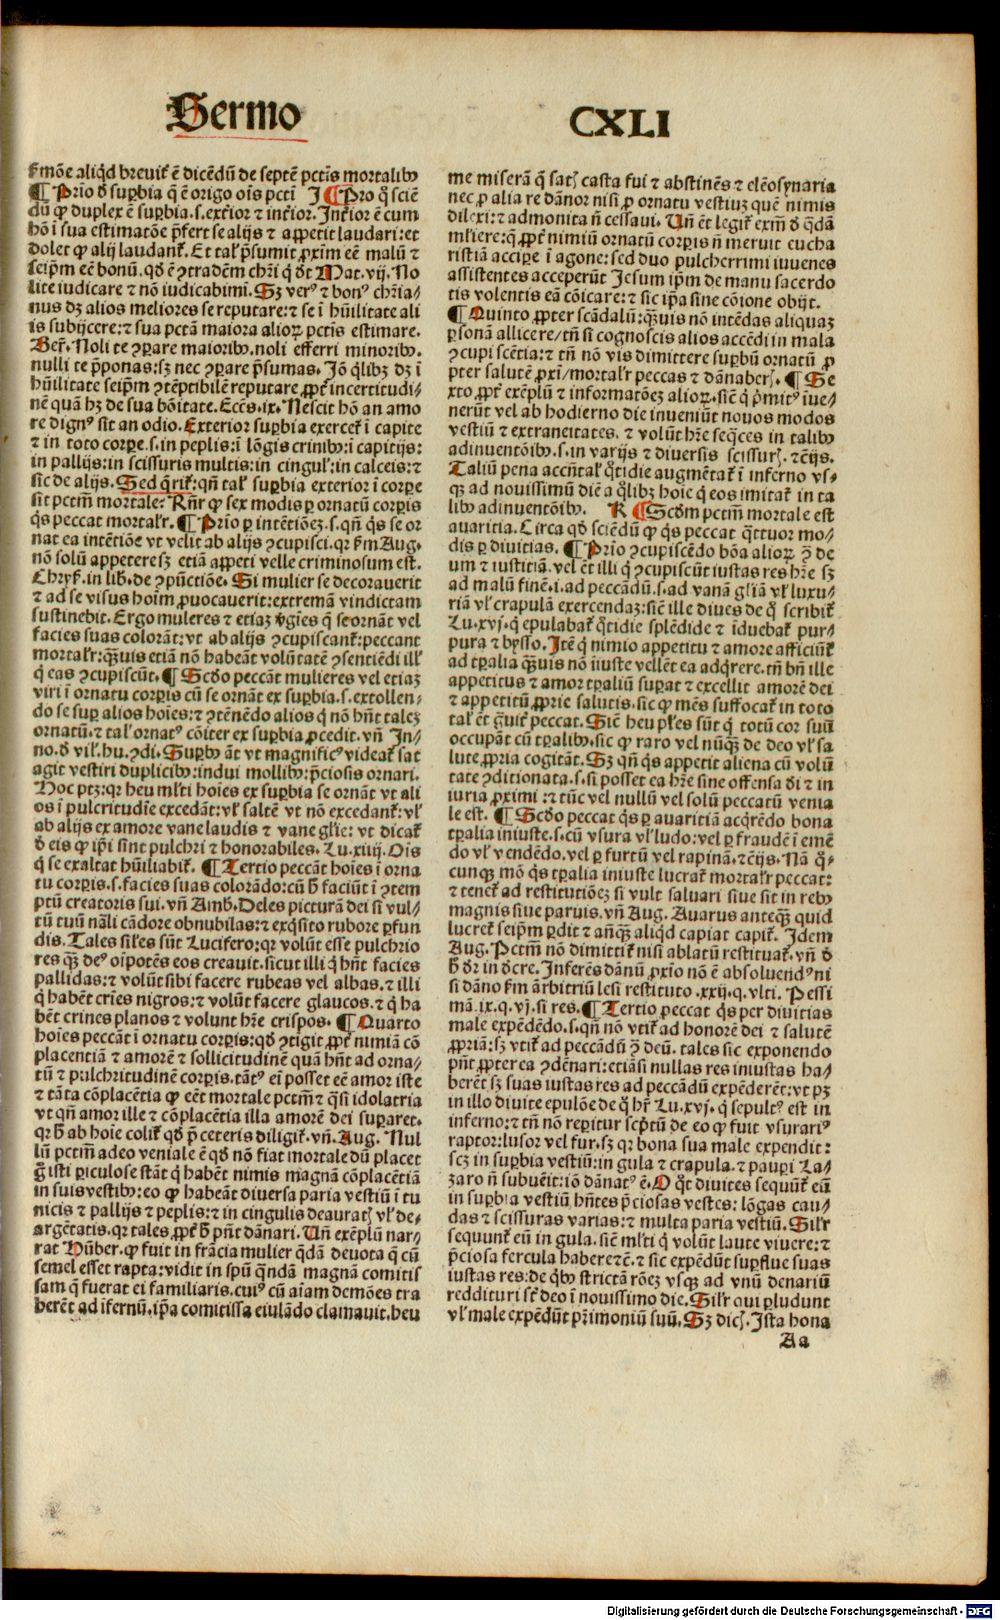 Sermo
CXLI
ẜmōe aliq̄d breuiť ē dicēdū de septē pctīs mortalibꝰ
¶ Prīo đ suꝑbia q̄ ē origo oīs pcti I ¶ Pro q̊ sciē
dū ꝙ duplex ē suꝑbia.s.exťior ⁊ inťior. Inťior ē cum
hō ī sua estimatōe p̄fert se alijs ⁊ appetit laudari: et
dolet ꝙ alij laudanť. Et tał p̄sumit ꝓxim̄ eē malū ⁊
seip̄m eē bonū. qđ ē ꝯtradēm chr̄i q̄ đt Mat. vij. No
lite iudicare ⁊ nō iudicabimī. Sꝫ verꝰ ⁊ bonꝰ chr̄ia/
nus dꝫ alios meliores se reputare: ⁊ se ī hūilitate ali
is subijcere: ⁊ sua pctā maiora alioꝝ pctīs estimare.
Ber̄. Noli te ꝯꝑare maioribꝰ. noli efferri minoribꝰ.
nulli te p̄ponas: sꝫ nec ꝯꝑare p̄sumas. Jō q̄libꝫ dꝫ ī
hūilitate seip̄m ꝯtēptibilē reputare ꝓpť incertitudi/
nē quā hꝫ de sua bōitate. Eccs. ix. Nescit hō an amo
re dignꝰ sit an odio. Exterior suꝑbia exerceť ī capite
⁊ in toto corꝑe.s.in peplis: ī lōgis crinibꝰ: ī capitijs:
in pallijs: in scissuris multis: in cingul̓: in calceis: ⁊
sic de alijs. Sed q̄riť: qn̄ tał suꝑbia exterior ī corꝑe
sit pctm̄ mortale: Rn̄r ꝙ sex modis ꝑ ornatū corꝑis
q̄s peccat mortalr̄. ¶ Prīo ꝑ intētiōeꝫ.s.qn̄ q̄s se or
nat ea intētiōe vt velit ab alijs ꝯcupisci. qr ẜm Aug.
nō solū appetere sꝫ etiā appeti velle criminosum est.
Chryß. in lib̄. de ꝯpūctiōe. Si mulier se decorauerit
⁊ ad se visus hoīm ꝓuocauerit: extremā vindictam
sustinebit. Ergo muleres ⁊ etiaꝫ v̓gies q̄ se ornāt vel
facies suas colorāt: vt ab alijs ꝯcupiscanť: peccant
mortalr̄: q̄uis etiā nō habeāt volūtatē ꝯsentiēdi ill̓
q̄ eas ꝯcupiscūt. ¶ Scđo peccāt mulieres vel etiaꝫ
viri ī ornatu corꝑis cū se ornāt ex suꝑbia.s.extollen/
do se suꝑ alios hoīes: ⁊ ꝯtēnēdo alios q̄ nō hn̄t taleꝫ
ornatū. ⁊ tał ornatꝰ cōiter ex suꝑbia ꝓcedit. vn̄ In/
no. đ vil̓. hu. ꝯdi. Suꝑbꝰ āt vt magnificꝰ videať sat
agit vestiri duplicibꝰ: indui mollibꝰ: p̄ciosis ornari.
Hoc ptꝫ: qr heu ml̓ti hoīes ex suꝑbia se ornāt vt ali
os ī pulcritudīe excedāt: vł saltē vt nō excedanť: vł
ab alijs ex amore vane laudis ⁊ vane gl̓ie: vt dicať
đ eis ꝙ ip̄i sint pulchri ⁊ honorabiles. Lu. xiiij. Oīs
q̄ se exaltat hūiliabiť. ¶ Tertio peccāt hoīes ī orna
tu corꝑis.s.facies suas colorādo: cū h̄ faciūt ī ꝯtem
ptū creatoris sui. vn̄ Amb̄. Deles picturā dei si vul/
tū tuū nāli cādore obnubilas: ⁊ exq̄sito rubore ꝑfun
dis. Tales siłes sūt Lucifero: qr volūt esse pulchrio
res q̄ꝫ deꝰ oīpotēs eos creauit. sicut illi q̄ hn̄t facies
pallidas: ⁊ volūt sibi facere rubeas vel albas. ⁊ illi
q̄ habēt crīes nigros: ⁊ volūt facere glaucos. ⁊ q̄ ha
bēt crines planos ⁊ volunt hr̄e crispos. ¶ Quarto
hoīes peccāt ī ornatu corꝑis: qđ ꝯtigit ꝓpť nimiā cō
placentiā ⁊ amorē ⁊ sollicitudinē quā hn̄t ad orna/
tū ⁊ pulchritudinē corꝑis. tātꝰ ei posset eē amor iste
⁊ tāta cōplacētia ꝙ eēt mortale pctm̄ ⁊ q̄si idolatria
vt qn̄ amor ille ⁊ cōplacētia illa amorē dei suꝑaret.
qr h̄ ab hoīe coliť qđ p̄ ceteris diligiť. vn̄. Aug. Nul
lū pctm̄ adeo veniale ē qđ nō fiat mortale dū placet
g̊ isti ꝑiculose stāt q̄ habēt nimis magnā cōplacētiā
in suis vestibꝰ: eo ꝙ habeāt diuersa paria vestiū ī tu
nicis ⁊ pallijs ⁊ peplis: ⁊ in cingulis deauratꝭ vł de/
argētatis. qr tales ꝓpť h̄ pn̄t dānari. Un̄ exēplū nar/
rat Hūber. ꝙ fuit in frācia mulier q̄dā deuota q̄ cū
semel esset rapta: vidit in spū q̄ndā magnā comitis
sam q̄ fuerat ei familiaris. cuiꝰ cū aīam demōes tra
herēt ad īfernū. ip̄a comitissa eiulādo clamauit. heu
me miserā q̄ satꝭ casta fui ⁊ abstinēs ⁊ elēosynaria
nec ꝓ alia re dānor nisi ꝓ ornatu vestiuꝫ quē nimis
dilexi: ⁊ admonita n̄ cessaui. Un̄ ēt legiť exm̄ đ q̄dā
ml̓iere: q̄ ꝓpť nimiū ornatū corꝑis n̄ meruit eucha
ristiā accipe ī agone: sed duo pulcherrimi iuuenes
assistentes acceperūt Jesum ip̄m de manu sacerdo
tis volentis eā cōicare: ⁊ sic ip̄a sine cōione obijt.
¶ Quinto ꝓpter scādalū: q̄uis nō intēdas aliquaꝫ
ꝑsonā allicere/ tn̄ si cognoscis alios accēdi in mala
ꝯcupiscētia: ⁊ tn̄ nō vis dimittere suꝑbū ornatū ꝓ
pter salutē ꝓxī/ mortalr̄ peccas ⁊ dānaberꝭ. ¶ Se
xto ꝓpť exēplū ⁊ informatōeꝫ alioꝝ. siē q̄ p̄mitꝰ īue/
nerūt vel ab hodierno die inueniūt nouos modos
vestiū ⁊ extraneitates. ⁊ volūt hr̄e seq̄ces in talibꝰ
adinuentōibꝰ.s.in varijs ⁊ diuersis scissurꝭ. ⁊cēijs.
Taliū pena accn̄tał q̊tidie augmētať ī inferno vs/
q̄ꝫ ad nouissimū diē a q̄libꝫ hoīe q̄ eos imitať in ta
libꝰ adinuentōibꝰ. K ¶ Scđm pctm̄ mortale est
auaritia. Circa qđ sciēdū ꝙ q̄s peccat q̄ttuor mo/
dis ꝑ diuitias. ¶ Prīo ꝯcupiscēdo bōa alioꝝ ꝯ̄ de
um ⁊ iustitiā. vel ēt illi q̄ ꝯcupiscūt iustas res hr̄e sꝫ
ad malū finē. i. ad peccādū.s.ad vanā gl̓iā vł luxu/
riā vł crapulā exercendaꝫ: siē ille diues de q̊ scribiť
Lu. xvj. q̄ epulabať q̊tidie splēdide ⁊ īduebať pur/
pura ⁊ bysso. Itē q̄ nimio appetitu ⁊ amore afficiūť
ad tꝑalia q̄uis nō iniuste vellēt ea adq̄rere. tn̄ hn̄t ille
appetitus ⁊ amor tꝑaliū suꝑat ⁊ excellit amorē dei
⁊ appetitū ꝓprie salutis. sic ꝙ mēs suffocať in toto
tał ēt g̊uiť peccat. Siē heu pl̓es sūt q̄ totū cor suū
occupāt cū tꝑalibꝰ. sic ꝙ raro vel nūq̄ꝫ de deo vł sa
lute ꝓpria cogitāt. Sꝫ qn̄ q̄s appetit aliena cū volū
tate ꝯditionata.s.si posset ea hr̄e sine offensa di ⁊ in
iuria ꝓximi: ⁊ tūc vel nullū vel solū peccatū venia
le est. ¶ Scđo peccat q̄s ꝑ auaritiā acq̄rēdo bona
tꝑalia iniuste.s.cū vsura vł ludo: vel ꝑ fraudē ī emē
do vł vendēdo. vel ꝑ furtū vel rapinā. ⁊cēijs. Nā q̄/
cunq̄ꝫ mō q̄s tꝑalia iniuste lucrať mortalr̄ peccat:
⁊ teneť ad restitutiōeꝫ si vult saluari siue sit in rebꝰ
magnis siue paruis. vn̄ Aug. Auarus anteq̄ꝫ quid
lucreť seip̄m ꝑdit ⁊ an̄q̄ꝫ aliq̄d capiat capiť. Idem
Aug. Pctm̄ nō dimittiť nisi ablatū restituať. vn̄ đ
h̄ dr̄ in đcre. Inferēs dānū ꝓxīo nō ē absoluendꝰ ni
si dānō ẜm arbitriū lesi restituto. xxij. q. vlti. Pessi
mā. ix. q. vj. si res. ¶ Tertio peccat q̄s per diuitias
male expēdēdo.s.qn̄ nō vtiť ad honorē dei ⁊ salutē
ꝓpriā: sꝫ vtiť ad peccādū ꝯ̄ deū. tales sic exponendo
pn̄t ꝓpter ea ꝯdēnari: etiāsi nullas res iniustas ha/
berēt sꝫ suas iustas res ad peccādū expēderēt: vt pꝫ
in illo diuite epulōe de q̊ hr̄ Lu. xvj. q̄ sepultꝰ est in
inferno: ⁊ tn̄ nō reꝑitur scp̄tū de eo ꝙ fuit vsurariꝰ
raptor: lusor vel fur. sꝫ qr bona sua male expendit:
scꝫ in suꝑbia vestiū: in gula ⁊ crapula. ⁊ pauꝑi La/
zaro n̄ subuēit: iō dānatꝰ ē. O q̊t diuites sequūť eū
in suꝑbia vestiū hn̄tes p̄ciosas vestes: lōgas cau/
das ⁊ scissuras varias: ⁊ multa paria vestiū. Silr̄
sequunť eū in gula. siē ml̓ti q̄ volūt laute viuere: ⁊
p̄ciosa fercula habere ⁊cē. ⁊ sic expēdūt suꝑflue suas
iustas res: de q̄bꝰ strictā rōeꝫ vsq̄ꝫ ad vnū denariū
reddituri sūt deo ī nouissimo die. Silr̄ qui ꝑludunt
vł male expēdūt pr̄imoniū suū. Sꝫ dicꝭ. Ista bona
Aa
Digitalisierung gefördert durch die Deutsche Forschungsgemeinschaft - DFG